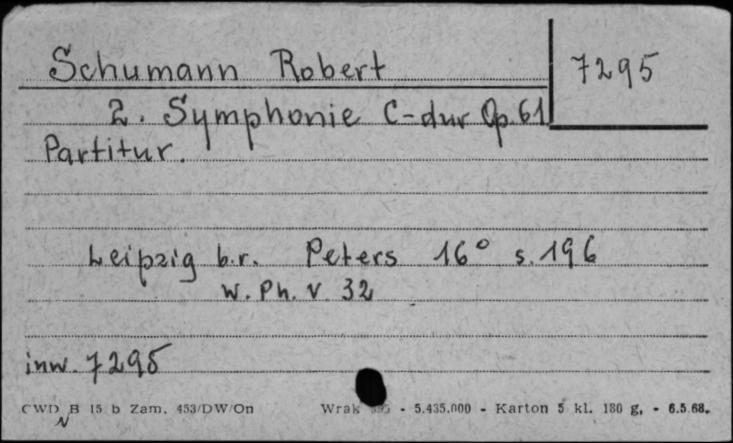 Schumann Robert 7295
2. Symphonie C-dur Op. 61
Partitur.
Leipzig b.r. Peters 16° s. 196
W. Ph. V. 32
inw. 7295
CWD B 15 b Zam. 453/DW/On Wrak - 5.435.000 - Karton 5 kl. 180 g, - 6.5.68.
N